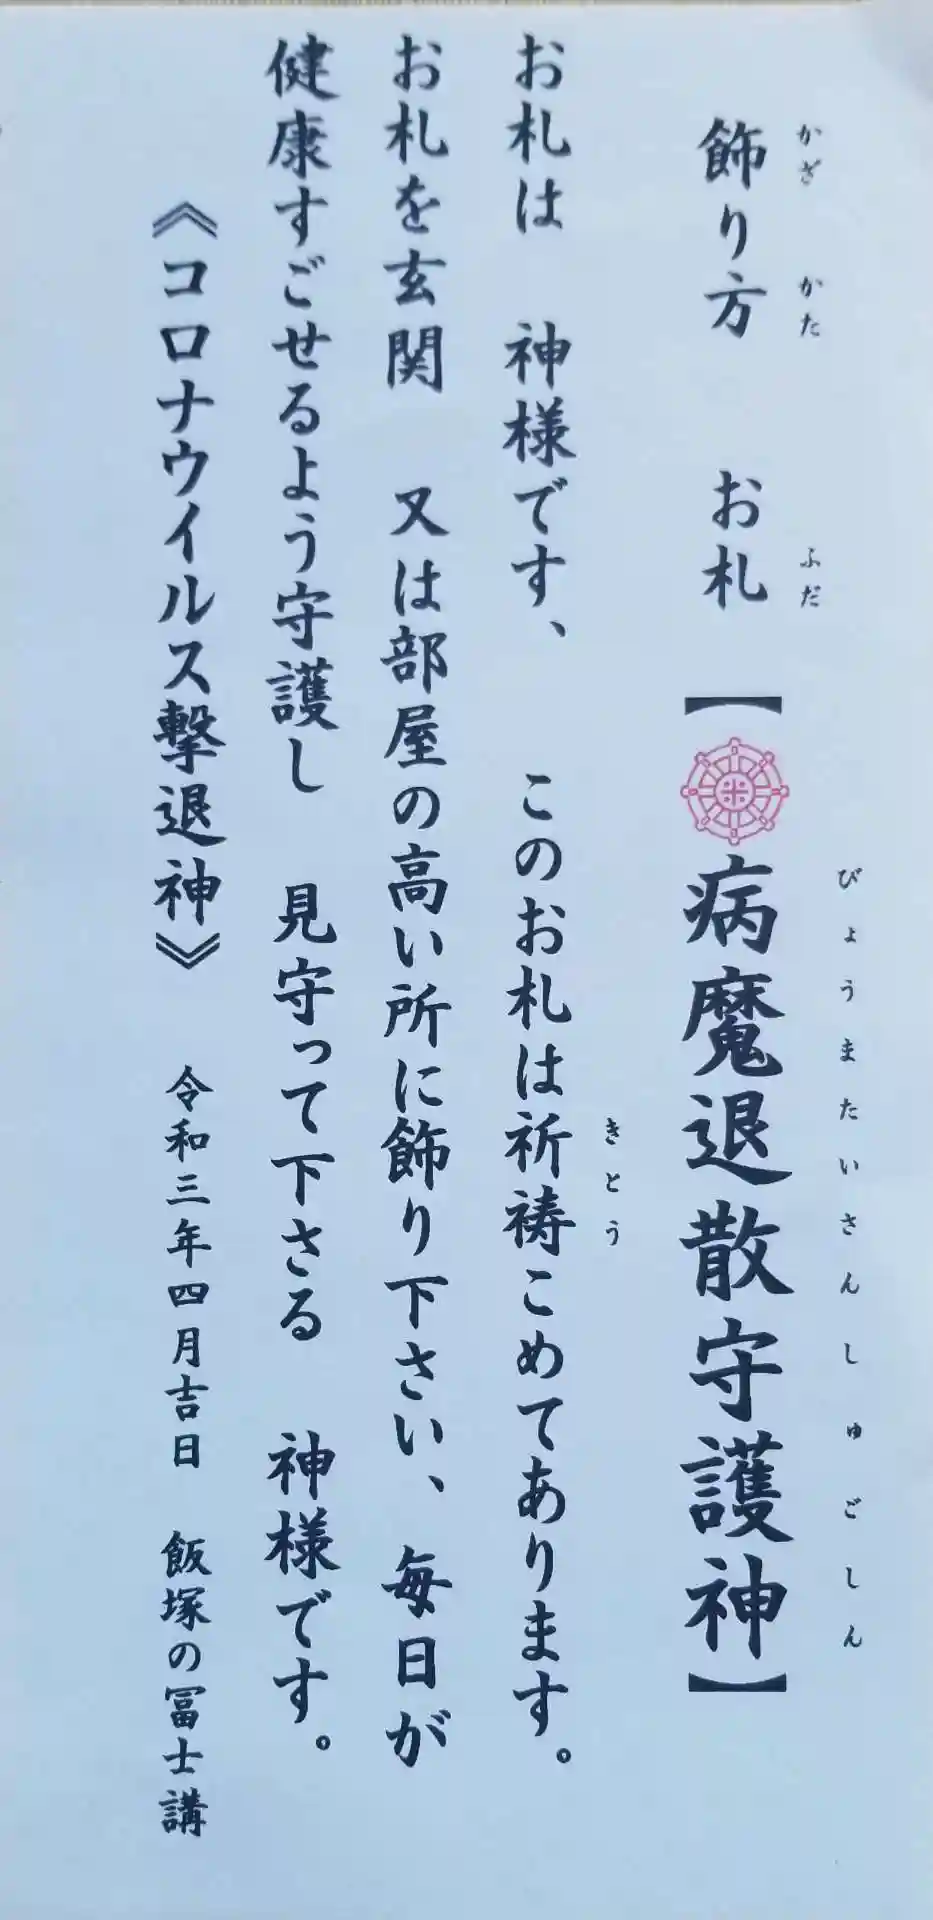 飾り方　お札【病魔退散守護神】
かざ　かた　ふだ　びょうまたいさんしゅごしん
お札は　神様です、　このお札は祈祷こめてあります。
きとう
お札を玄関　又は部屋の高い所に飾り下さい、毎日が
健康すごせるよう守護し　見守って下さる　神様です。
《コロナウイルス撃退神》　令和三年四月吉日　飯塚の冨士講